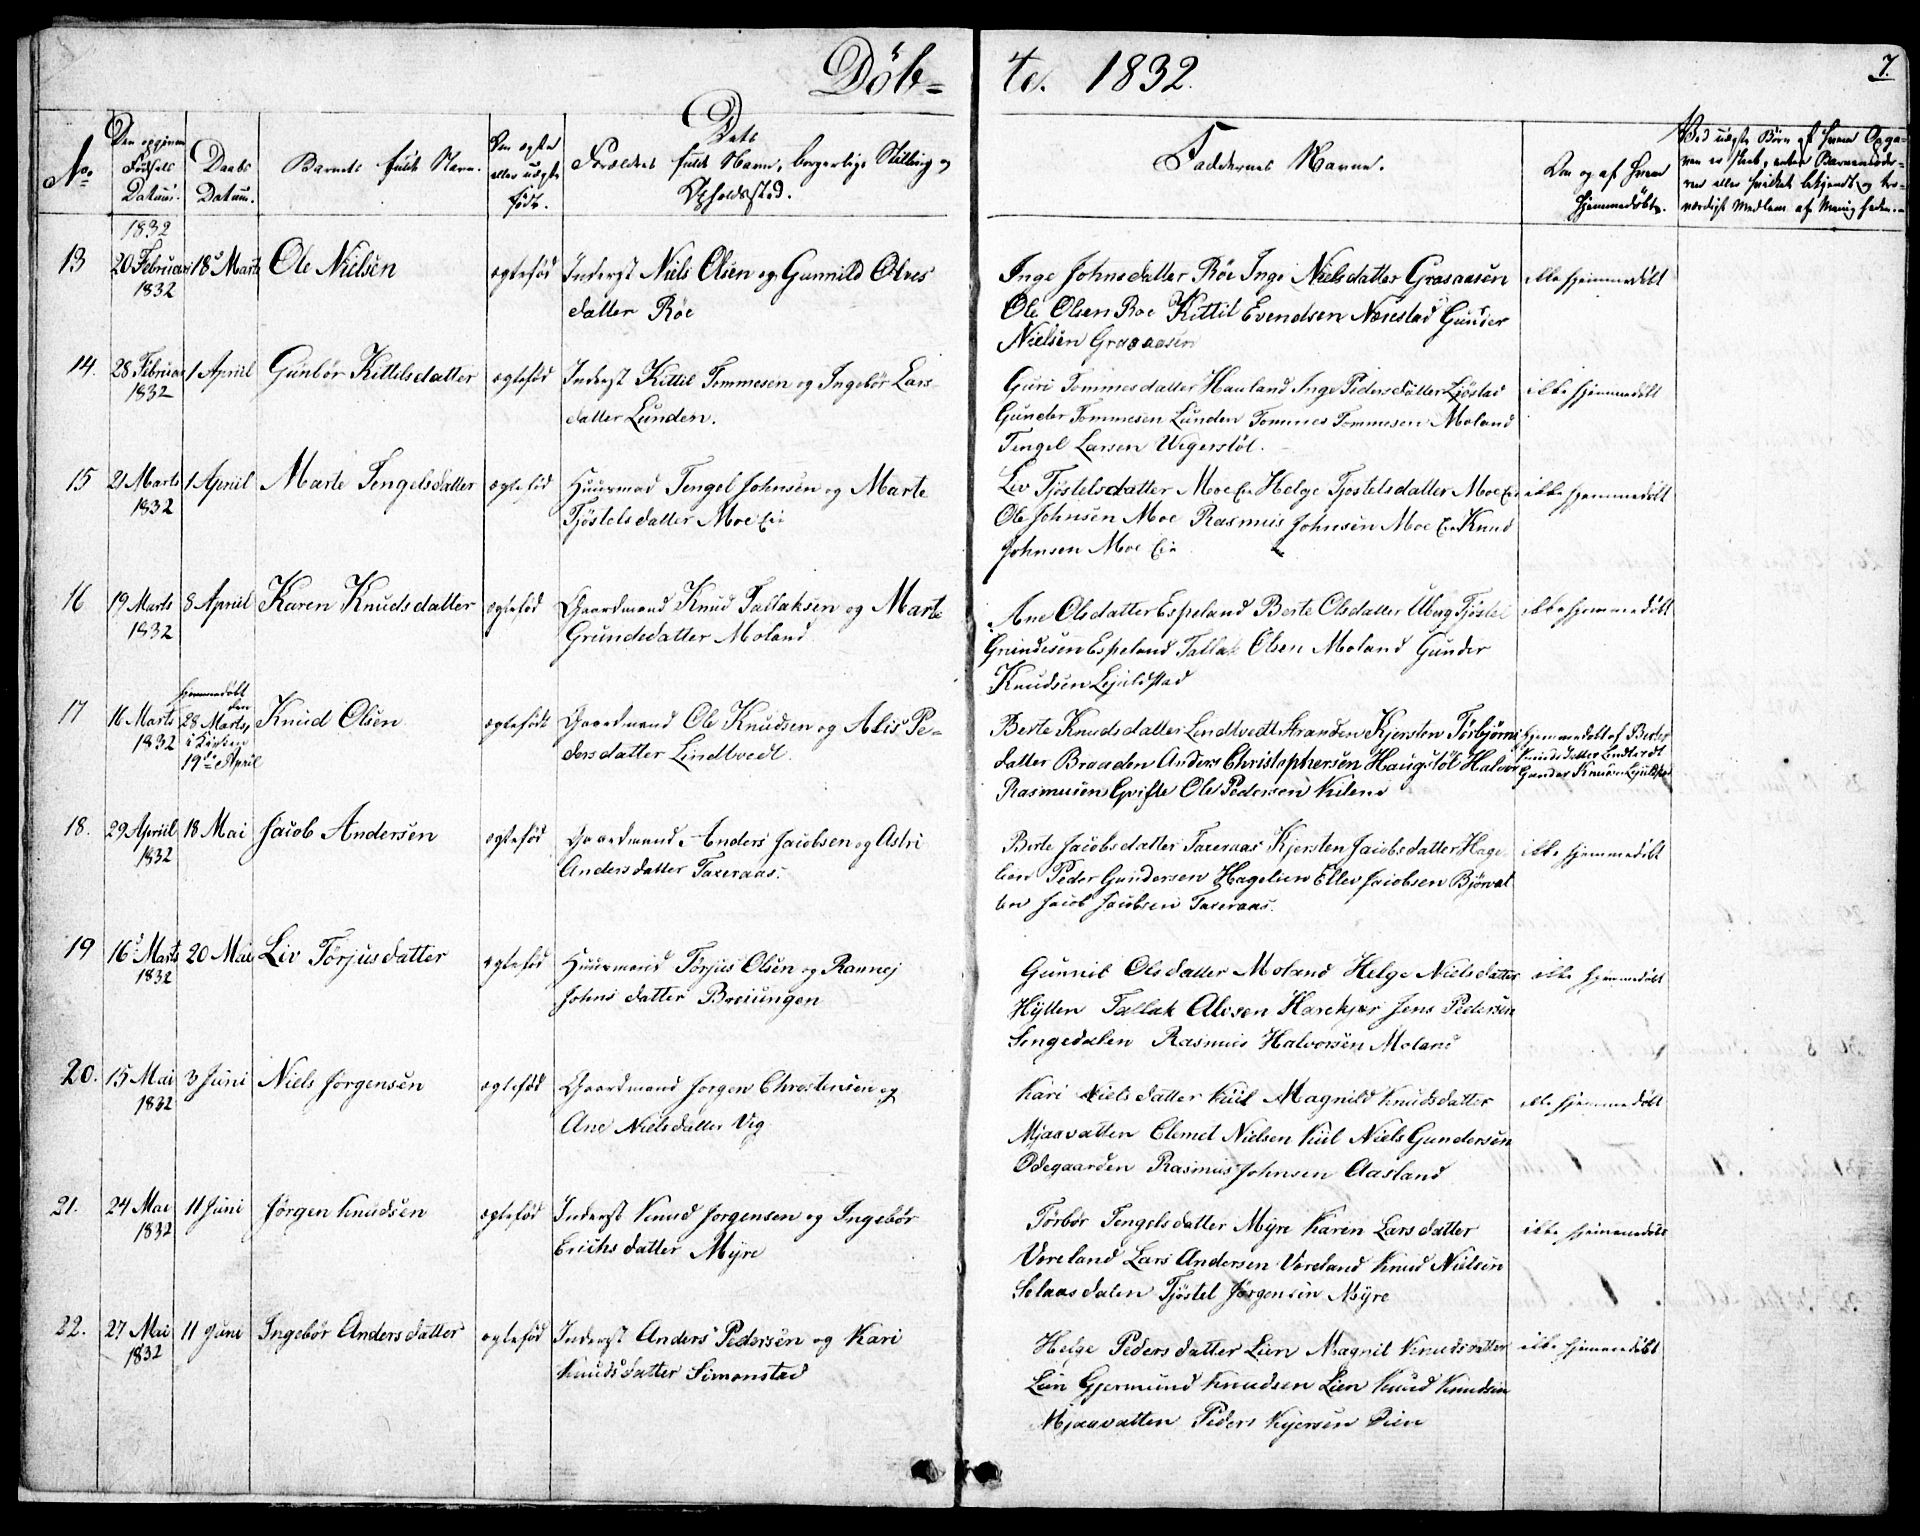 Döb=
te. 1832.
7.
No
Den opgivne
Födsels
Datum.
Daabs
Datum.
Barnets fulde Navn.
Om ægte
eller uægte
födt.
Dets
Forældres fulde Navn, borgerlige Stilling og
Opholdssted.
Faddernes Navne.
Om og af hvem
hjemmedöbt.
Ved uægte Börn af hvem Opga-
ven er skeet, enten Barnemode-
ren eller hvilket bekjendt og tro-
værdigt Medlem af Menigheden.
1832
13
20 Februari
1832
18 Marts
Ole Nielsen
ægtefød
Inderst Niels Olsen og Gunnild Olves
datter Röe
Inge Johnsdatter Röe Inge Nielsdatter Grasaasen
Ole Olsen Roe Kittil Evendsen Næsestad Gunder
Nielsen Grasaasen
ikke hjemmedöbt
14.
28 Februar
1832
1 April
Gunbör Kittelsdatter
ægtefød
Inderst Kittil Tommesen og Ingebör Lars
datter Lunden.
Guri Tommesdatter Hauland Inge Pedersdatter Ljöstad
Gunder Tommesen Lunden Tommes Tommesen Moland
Tengel Larsen Wigerstöl.
ikke hjemmedöbt
15
21 Marts
1832
1 April
Marte Tengelsdatter
ægtefød
Huusmad Tengel Johnsen og Marte
Tjöstelsdatter Moe Eie
Lev Tjöstelsdatter Moe Eie Helge Tjostelsdatter Moe Eie
Ole Johnsen Moe Rasmus Johnsen Moe Eie Knud
Johnsen Moe Eie
ikke hjemmedöbt
16
19 Marts
1832
8 April
Karen Knudsdatter
ægtefød
Gaardmand Knud Tallaksen og Marte
Grundedatter Moland
Ane Olsdatter Espeland Berte Olsdatter Uberg Tjöstel
Grundesen Espeland Tallak Olsen Moland Gunder
Knudsen Lejuldstad
ikke hjemmedöbt
17
16 Marts
1832
hjemmedöbt
den
28 Marts,
i Kirken
19de April
Knud Olsen
ægtefödt
Gaardmand Ole Knudsen og Alis Pe-
dersdatter Lindtvedt.
Berte Knudsdatter Lendtvedt Stranden Kjersten Törbjörns
datter Braaden Anders Christophersen Haugstöl Halvor
Rasmusen Ole Pedersen Kilene
hjemmedöbt af Berte
Knudsdatter Lendtvedt
Gunder Knudsen Lejuldstad
18.
29 April
1832
18 Mai
Jacob Andersen
ægtefød
Gaardmand Anders Jacobsen og Astri
Andersdatter Taxeraas.
Berte Jacobsdatter Taxeraas Kjersten Jacobsdatter Hage-
lien Peder Gundersen Hagelien Ellev Jacobsen Björvat
ten Jacob Jacobsen Taxeraas.
ikke hjemmedöbt
19
16 Marts
1832
20 Mai
Liv Törjusdatter
ægtefød
Huusmand Törjus Olsen og Rannej
Johnsdatter Breiungen
Gunnil Olsdatter Moland Helge Nielsdatter
Hytten Tallak Alvsen Harekjær Jens Pedersen
Songedalen Rasmus Halvorsen Moland
ikke hjemmedöbt
20.
15 Mai
1832
3 Juni
Niels Jörgensen
ægtefød
Gaardmand Jorgen Chrestensen og
Ane Nielsdatter Vig
Kari Nielsdatter Kiil Magnild Knudsdatter
Mjaavatten Clemet Nielsen Kiil Niels Gundersen
Odegaarden Rasmus Johnsen Aasland
ikke hjemmedöbt
21.
24 Mai
1832
11 Juni
Jörgen Knudsen
ægtefød
Inderst Knud Jorgensen og Ingebör
Erichsdatter Myre
Törbör Tengelsdatter Myre Karen Larsdatter
Voreland Lars Andersen Voreland Knud Nielsen
Selaasdalen Tjöstel Jörgensen Myre
ikke hjemmedöbt
22.
27 Mai
1832
11 Juni
Ingebör Andersdatter
ægtefød
Inderst Anders Pedersen og Kari
Knudsdatter Simonstad
Helge Pedersdatter Lien Magnil Knudsdatter
Lien Gjermund Knudsen Lien Knud Knudsen
Mjaavatten Peder
ikke hjemmedöbt